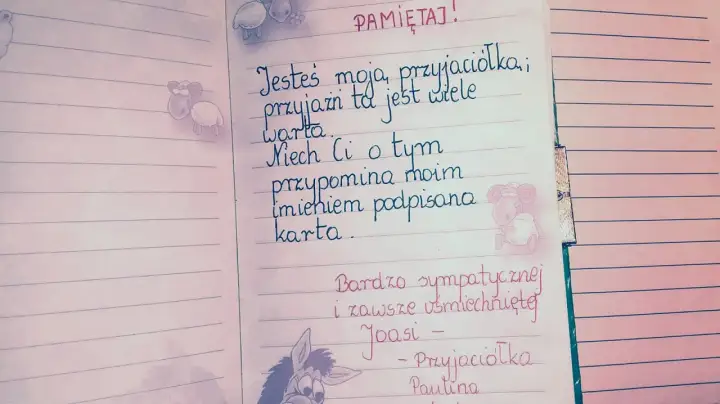 PAMIĘTAJ!
Jesteś moją przyjaciółką i
przyjaźń ta jest wiele
warta.
Niech Ci o tym
przypomina moim
imieniem podpisana
karta.
Bardzo sympatycznej
i zawsze uśmiechniętej
Joasi -
- Przyjaciółka
Paulina